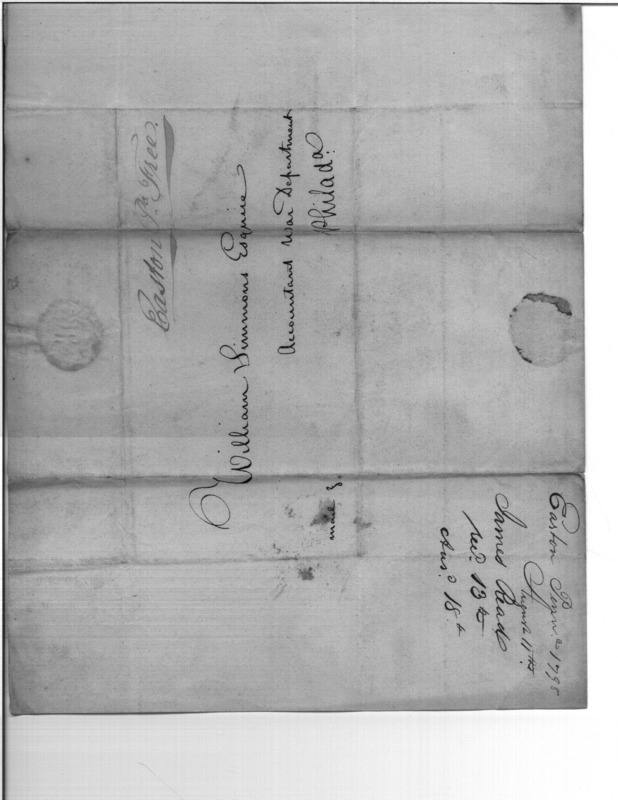 Easton Pa Free.
William Simmons Esquire
Accountant War Department
Philada.
Easton Penna 1798
August 11th
James Read
recd. 13th
Ansd. 18th